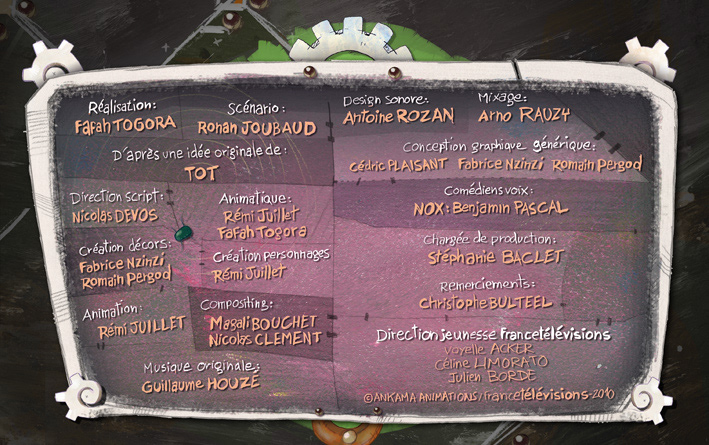 Réalisation:
Fafah TOGORA
Scénario:
Ronan JOUBAUD
D'après une idée originale de:
TOT
Direction script:
Nicolas DEVOS
Animatique:
Rémi Juillet
Fafah Togora
Création décors:
Fabrice Nzinzi
Romain Pergod
Création personnages
Rémi Juillet
Animation:
Rémi JUILLET
Compositing:
Magali BOUCHET
Nicolas CLEMENT
Musique originale:
Guillaume HOUZÉ
Design Sonore:
Antoine ROZAN
Mixage:
Arno RAUZY
Conception graphique générique:
Cédric PLAISANT Fabrice Nzinzi Romain Pergod
Comédiens voix:
NOX: Benjamin PASCAL
Chargée de production:
Stéphanie BACLET
Remerciements:
Christophe BULTEEL
Direction jeunesse francetélévisions
Voyelle ACKER
Céline LIMORATO
Julien BORDE
©ANKAMA ANIMATIONS/francetélévisions-2010